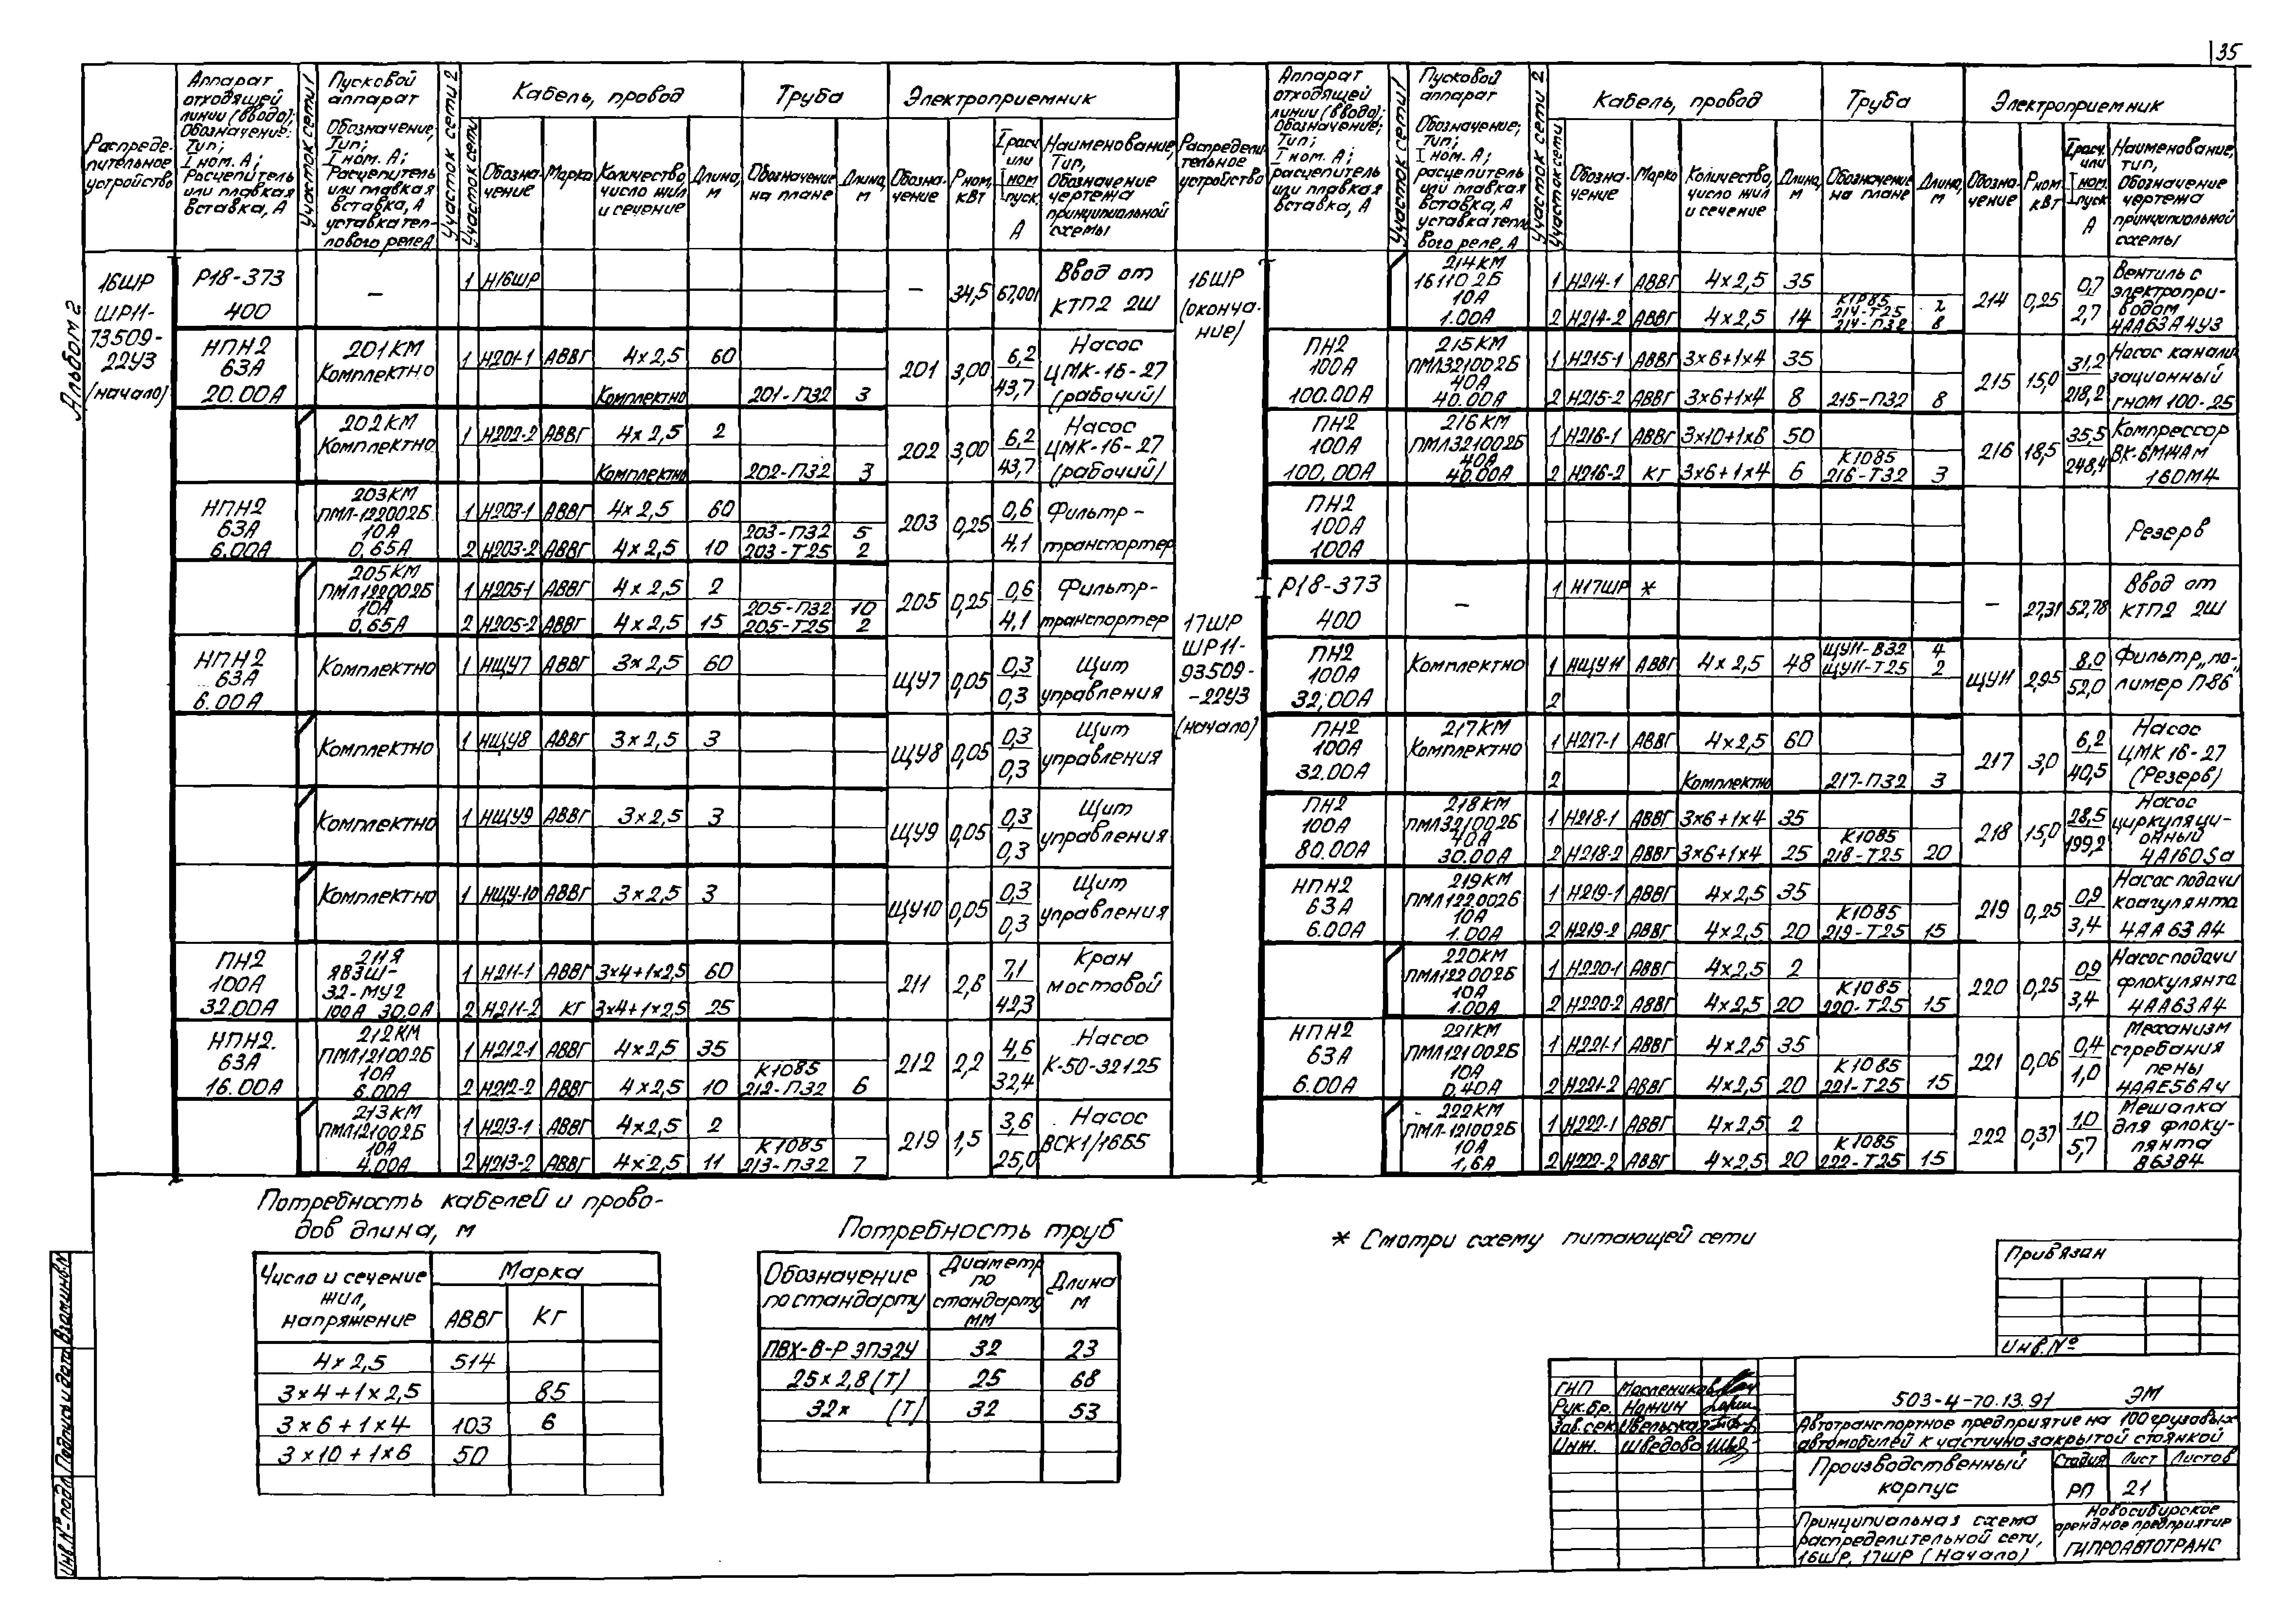 35
Альбом 2
Распределительное устройство
Аппарат отходящей линии (ввода); Обозначение; Тип; I ном. А; Расцепитель или плавкая вставка, А
Участок сети 1
Пусковой аппарат Обозначение; Тип; I ном. А; Расцепитель или плавкая вставка, А уставка теплового реле А
Участок сети 2
Кабель, провод
Участок сети
Обозначение
Марка
Количество, число жил и сечение
Длина, м
Труба
Обозначение на плане
Длина, м
Электроприемник
Обозначение
Рном, кВт
Iрасч или Iном Iпуск. А
Наименование, Тип, Обозначение чертежа принципиальной схемы
16ШР ШР11-73509-22У3 (начало)
Р18-373 400 — 1 Н16ШР — 34,5 67,001 Ввод от КТП2 2Ш
НПН2 63А 20.00А 201КМ Комплектно 1 Н201-1 АВВГ 4×2,5 60
Комплектно 201-П32 3 201 3,00 6,2 43,7 Насос ЦМК-16-27 (рабочий)
202КМ Комплектно 1 Н202-2 АВВГ 4×2,5 2
Комплектно 202-П32 3 202 3,00 6,2 43,7 Насос ЦМК-16-27 (рабочий)
НПН2 63А 6.00А 203КМ ПМЛ-122002Б 10А 0,65А 1 Н203-1 АВВГ 4×2,5 60
2 Н203-2 АВВГ 4×2,5 10 203-П32 5 203-Т25 2 203 0,25 0,6 4,1 Фильтр-транспортер
205КМ ПМЛ122002Б 10А 0,65А 1 Н205-1 АВВГ 4×2,5 2
2 Н205-2 АВВГ 4×2,5 15 205-П32 10 205-Т25 2 205 0,25 0,6 4,1 Фильтр-транспортер
НПН2 63А 6.00А Комплектно 1 НЩУ7 АВВГ 3×2,5 60 ЩУ7 0,05 0,3 0,3 Щит управления
Комплектно 1 НЩУ8 АВВГ 3×2,5 3 ЩУ8 0,05 0,3 0,3 Щит управления
Комплектно 1 НЩУ9 АВВГ 3×2,5 3 ЩУ9 0,05 0,3 0,3 Щит управления
Комплектно 1 НЩУ-10 АВВГ 3×2,5 3 ЩУ10 0,05 0,3 0,3 Щит управления
ПН2 100А 32.00А 211Я ЯВЗШ-32-МУ2 100А 30.0А 1 Н211-1 АВВГ 3×4+1×2,5 60
2 Н211-2 КГ 3×4+1×2,5 25 211 2,8 7,1 42,3 Кран мостовой
НПН2. 63А 16.00А 212КМ ПМЛ121002Б 10А 6.00А 1 Н212-1 АВВГ 4×2,5 35
2 Н212-2 АВВГ 4×2,5 10 К1085 212-П32 6 212 2,2 4,6 32,4 Насос К-50-32125
213КМ ПМЛ121002Б 10А 4.00А 1 Н213-1 АВВГ 4×2,5 2
2 Н213-2 АВВГ 4×2,5 11 К1085 213-П32 7 219 1,5 3,6 25,0 Насос ВСК1/16Б5
Распределительное устройство
Аппарат отходящей линии (ввода); Обозначение; Тип; I ном. А; расцепитель или плавкая вставка, А
Участок сети 1
Пусковой аппарат Обозначение; Тип; I ном. А; расцепитель или плавкая вставка, А уставка теплового реле, А
Участок сети 2
Кабель, провод
Участок сети
Обозначение
Марка
Количество, число жил и сечение
Длина, м
Труба
Обозначение на плане
Длина, м
Электроприемник
Обозначение
Рном. кВт
Iрасч. или Iном. Iпуск А
Наименование, тип, Обозначение чертежа принципиальной схемы
16ШР (окончание)
214КМ 161102Б 10А 1.00А 1 Н214-1 АВВГ 4×2,5 35
2 Н214-2 АВВГ 4×2,5 14 КТР85 214-Т25 2 214-П32 8 214 0,25 0,7 2,7 Вентиль с электроприводом 4АА63А4У3
ПН2 100А 100.00А 215КМ ПМЛ321002Б 40А 40.00А 1 Н215-1 АВВГ 3×6+1×4 35
2 Н215-2 АВВГ 3×6+1×4 8 215-П32 8 215 15,0 31,2 218,2 Насос канализационный гном 100-25
ПН2 100А 100,00А 216КМ ПМЛ321002Б 40А 40.00А 1 Н216-1 АВВГ 3×10+1×6 50
2 Н216-2 КГ 3×6+1×4 6 К1085 216-Т32 3 216 18,5 35,5 248,4 Компрессор ВК-6МЖАМ 160М4
ПН2 100А 100А Резерв
17ШР ШР11-93509--22У3 (начало)
Р18-373 400 — 1 Н17ШР * — 27,31 52,78 Ввод от КТП2 2Ш
ПН2 100А 32,00А Комплектно 1 НЩУ11 АВВГ 4×2,5 48 ЩУ11-В32 4 ЩУ11-Т25 2
2 ЩУ11 2,95 8,0 52,0 Фильтр „полимер П86"
ПН2 100А 32.00А 217КМ Комплектно 1 Н217-1 АВВГ 4×2,5 60
2 Комплектно 217-П32 3 217 3,0 6,2 40,5 Насос ЦМК16-27 (Резерв)
ПН2 100А 80.00А 218КМ ПМЛ321002Б 40А 30.00А 1 Н218-1 АВВГ 3×6+1×4 35
2 Н218-2 АВВГ 3×6+1×4 25 К1085 218-Т25 20 218 15,0 28,5 199,2 Насос циркуляционный 4А160Sа
НПН2 63А 6.00А 219КМ ПМЛ122002Б 10А 1.00А 1 Н219-1 АВВГ 4×2,5 35
2 Н219-2 АВВГ 4×2,5 20 К1085 219-Т25 15 219 0,25 0,9 3,4 Насос подачи коагулянта 4АА63А4
220КМ ПМЛ122002Б 10А 1.00А 1 Н220-1 АВВГ 4×2,5 2
2 Н220-2 АВВГ 4×2,5 20 К1085 220-Т25 15 220 0,25 0,9 3,4 Насос подачи флокулянта 4АА63А4
НПН2 63А 6.00А 221КМ ПМЛ121002Б 10А 0.40А 1 Н221-1 АВВГ 4×2,5 35
2 Н221-2 АВВГ 4×2,5 20 К1085 221-Т25 15 221 0,06 0,4 1,0 Механизм сгребания пены 4ААЕ56А4
222КМ ПМЛ-121002Б 10А 1,6А 1 Н222-1 АВВГ 4×2,5 2
2 Н222-2 АВВГ 4×2,5 20 К1085 222-Т25 15 222 0,37 1,0 5,7 Мешалка для флокулянта 86384
Потребность кабелей и прово-
дов длина, м
Число и сечение жил, напряжение
Марка
АВВГ КГ
4×2,5 514
3×4+1×2,5 85
3×6+1×4 103 6
3×10+1×6 50
Потребность труб
Обозначение по стандарту
Диаметр по стандарту мм
Длина м
ПВХ-В-Р ЭП32У 32 23
25×2,8 (Т) 25 68
32× (Т) 32 53
* Смотри схему питающей сети
Привязан
Инв.№
ГИП Маслеников
Рук.бр. Нажин
Зав.сек. Ивельская
Инж. Шведова
503-4-70.13.91 ЭМ
Автотранспортное предприятие на 100 грузовых
автомобилей к частично закрытой стоянкой
Производственный
корпус
Стадия Лист Листов
РП 21
Принципиальная схема
распределительной сети,
16ШР, 17ШР (Начало)
Новосибирское
арендное предприятие
ГИПРОАВТОТРАНС
Инв.№подл. Подпись и дата Взам.инв.N